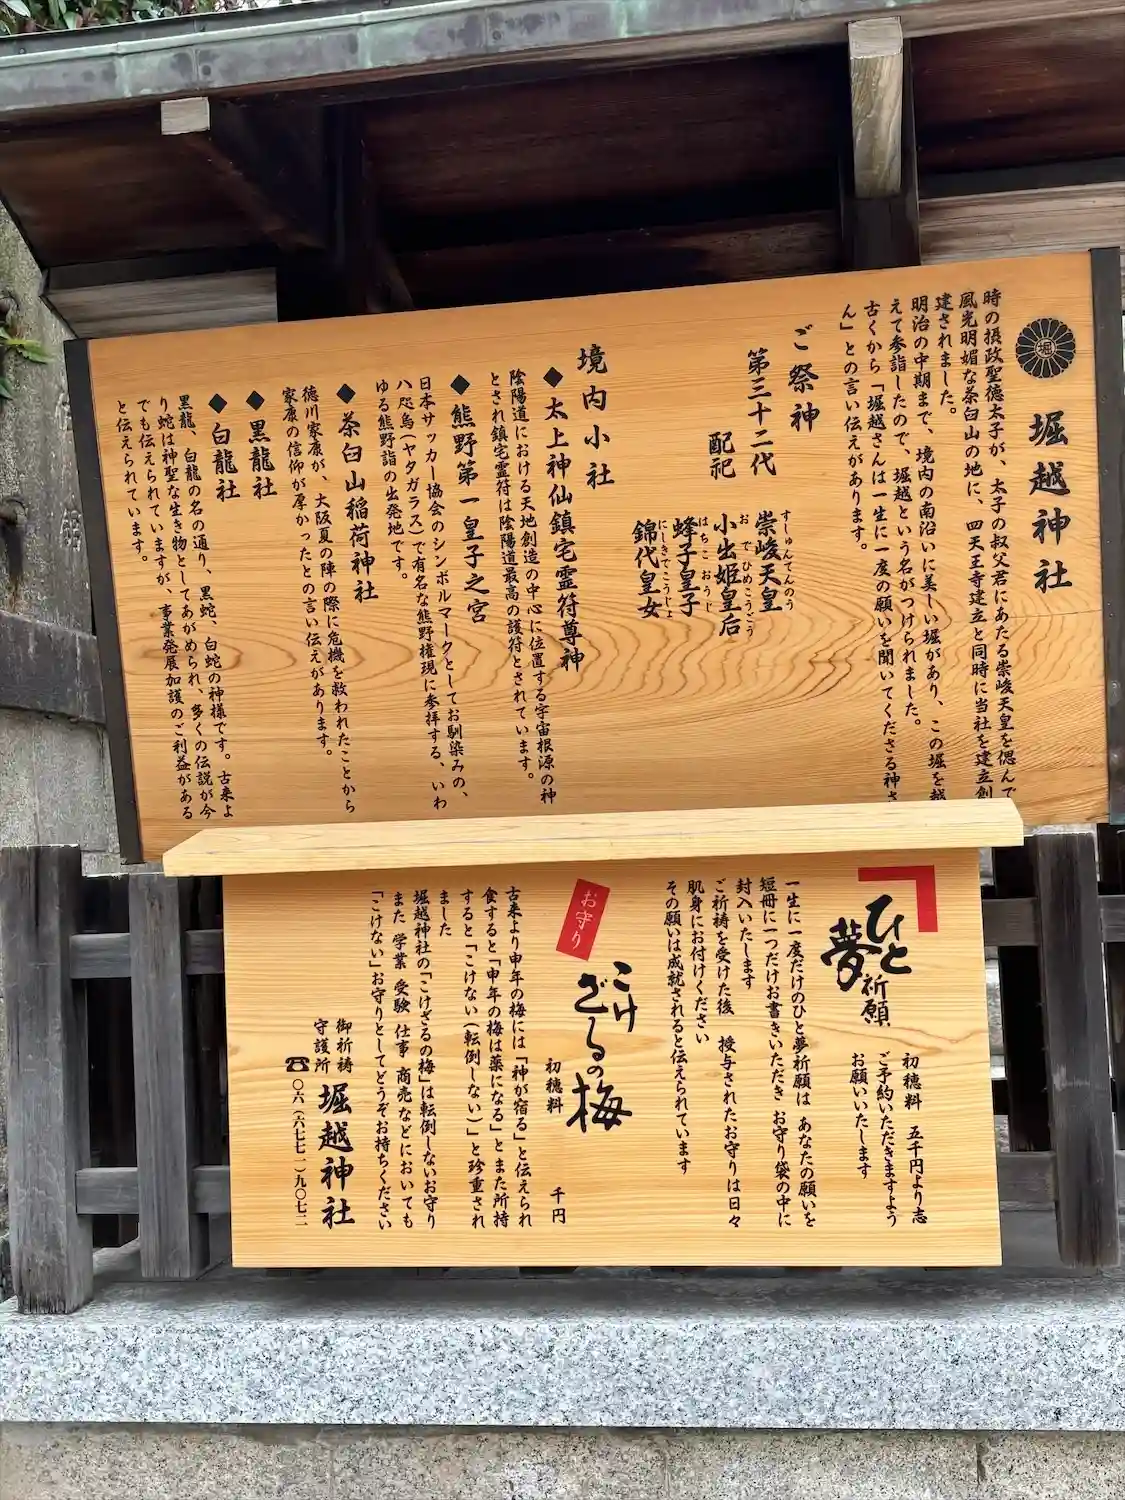 堀
堀越神社
時の摂政聖徳太子が、太子の叔父君にあたる崇峻天皇を偲んで
風光明媚な茶臼山の地に、四天王寺建立と同時に当社を建立創
建されました。
明治の中期まで、境内の南沿いに美しい堀があり、この堀を越
えて参詣したので、堀越という名がつけられました。
古くから「堀越さんは一生に一度の願いを聞いてくださる神さ
ん」との言い伝えがあります。
ご祭神
第三十二代 崇峻天皇
すしゅんてんのう
配祀 小出姫皇后
おでひめこうごう
蜂子皇子
はちこおうじ
錦代皇女
にしきでこうじょ
境内小社
◆太上神仙鎮宅霊符尊神
陰陽道における天地創造の中心に位置する宇宙根源の神
とされ鎮宅霊符は陰陽道最高の護符とされています。
◆熊野第一皇子之宮
日本サッカー協会のシンボルマークとしてお馴染みの、
八咫烏(ヤタガラス)で有名な熊野権現に参拝する、いわ
ゆる熊野詣の出発地です。
◆茶臼山稲荷神社
徳川家康が、大阪夏の陣の際に危機を救われたことから
家康の信仰が厚かったとの言い伝えがあります。
◆黒龍社
◆白龍社
黒龍、白龍の名の通り、黒蛇、白蛇の神様です。古来よ
り蛇は神聖な生き物としてあがめられ、多くの伝説が今
でも伝えられていますが、事業発展加護のご利益がある
と伝えられています。
ひと夢祈願
初穂料 五千円より志
ご予約いただきますよう
お願いいたします
一生に一度だけのひと夢祈願は あなたの願いを
短冊に一つだけお書きいただき お守り袋の中に
封入いたします
ご祈祷を受けた後 授与されたお守りは日々
肌身にお付けください
その願いは成就されると伝えられています
お守り
こけざるの梅
初穂料 千円
古来より申年の梅には「神が宿る」と伝えられ
食すると「申年の梅は薬になる」とまた所持
すると「こけない(転倒しない)」と珍重され
ました
堀越神社の「こけざるの梅」は転倒しないお守り
また 学業 受験 仕事 商売などにおいても
「こけない」お守りとしてどうぞお持ちください
御祈祷
守護所
堀越神社
☎〇六(六七七一)九〇七二